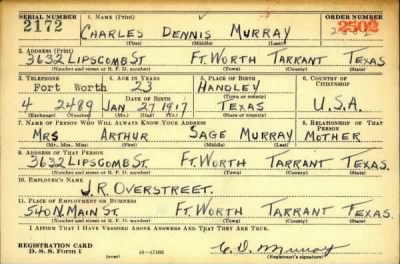 SERIAL NUMBER 1. NAME (Print) ORDER NUMBER
2172 CHARLES DENNIS MURRAY 2502
(First) (Middle) (Last)
2. ADDRESS (Print)
3632 LIPSCOMB ST FT. WORTH TARRANT TEXAS
(Number and street or R. F. D. number) (Town) (County) (State)
3. TELEPHONE 4. AGE IN YEARS 5. PLACE OF BIRTH 6. COUNTRY OF CITIZENSHIP
Fort Worth 23 HANDLEY
DATE OF BIRTH (Town or county)
4 2489 JAN 27 1917 TEXAS U.S.A.
(Exchange) (Number) (Mo.) (Day) (Yr.) (State or country)
7. NAME OF PERSON WHO WILL ALWAYS KNOW YOUR ADDRESS 8. RELATIONSHIP OF THAT PERSON
MRS ARTHUR SAGE MURRAY MOTHER
(Mr., Mrs., Miss) (First) (Middle) (Last)
9. ADDRESS OF THAT PERSON
3632 LIPSCOMB ST. FT. WORTH TARRANT TEXAS.
(Number and street or R. F. D. number) (Town) (County) (State)
10. EMPLOYER'S NAME
J.R. OVERSTREET.
11. PLACE OF EMPLOYMENT OR BUSINESS
540 N. MAIN ST FT. WORTH TARRANT TEXAS.
(Number and street or R. F. D. number) (Town) (County) (State)
I AFFIRM THAT I HAVE VERIFIED ABOVE ANSWERS AND THAT THEY ARE TRUE.
REGISTRATION CARD
D. S. S. FORM 1 (over) C. D. Murray
(Registrant's signature)